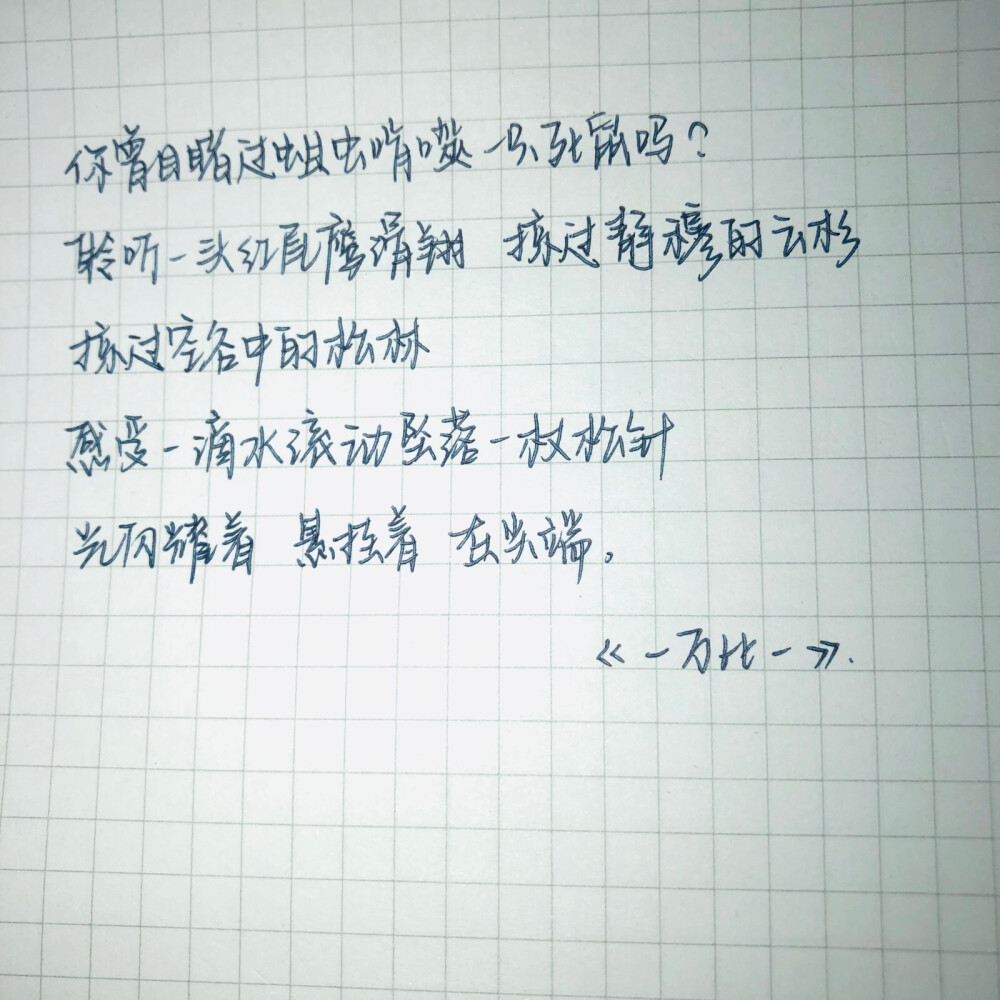 你曾目睹过蛆虫啃噬一只死鼠吗？
聆听一头红尾鹰滑翔 掠过静穆的云杉
掠过空谷中的松林
感受一滴水滚动坠落一枚松针
光闪耀着 悬挂着 在尖端。
《一万比一》.